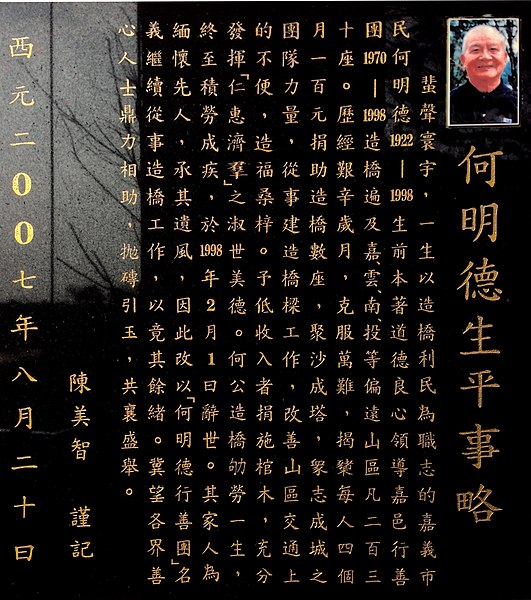 何明德生平事略
蜚聲寰宇，一生以造橋利民為職志的嘉義市
民何明德1922—1998生前本著道德良心領導嘉邑行善
團1970—1998造橋遍及嘉、雲、南、投等偏遠山區凡二百三
十座。歷經艱辛歲月，克服萬難，揭櫫每人四個
月一百元捐助造橋數座，聚沙成塔，眾志成城之
團隊力量，從事建造橋樑工作，改善山區交通上
的不便，造福桑梓。予低收入者捐施棺木，充分
發揮「仁惠濟羣」之淑世美德。何公造橋劬勞一生，
終至積勞成疾，於1998年2月1日辭世。其家人為
緬懷先人，承其遺風，因此改以「何明德行善團」名
義繼續從事造橋工作，以竟其餘緒。冀望各界善
心人士鼎力相助，拋磚引玉，共襄盛舉。
陳美智 謹記
西元二00七年八月二十日